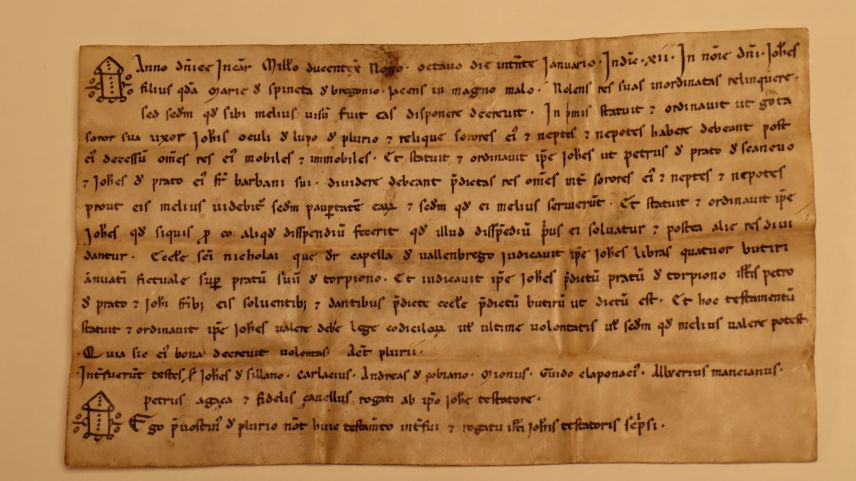 Anno dn̄ice Incar̄ Mill'o ducentex̄ Nono. octauo die int̄nte Januario. Indic̄. xii. In noīe dn̄i. Joh̄es
filius qd̄a Marie d' spineta d' bregonio. Jacens in magno malo. Nolens res suas inordinatas relinquere.
sed sed̄m qd' sibi melius uisū fuit eas disponere decreuit. In p̄mis statuit ⁊ ordinauit ut gota
soror sua uxor Joh̄is oculi d' lupo d' plurio ⁊ relique sorores ei' ⁊ neptes ⁊ nepotes habere debeant post
ei' decessū om̄es res ei' mobiles ⁊ immobiles. Et statuit ⁊ ordinauit ip̄e Joh̄es ut petrus d' prato d' sceanouo
⁊ Joh̄es d' prato ei' fr̄ barbani sui. diuidere debeant p̄dictas res om̄es int̄ sorores ei' ⁊ neptes ⁊ nepotes
prout eis melius uidebit' sed̄m paup̄tatē ⁊ sed̄m qd' ei melius seruierūt. Et statuit ⁊ ordinauit ip̄e
Joh̄es qd' siquis p̱ eo aliqd' dispendiū fecerit qd' illud disp̄ediū p̄us ei soluatur ⁊ postea alie res diui
dantur. Eccl'e sc̄i nicholai que dr̄ capella d' uallenbrego iudicauit ip̄e Joh̄es libras quatuor butiri
ānuatī fictuale sup̄ pratū suū d' torpiono. Et iudicauit ip̄e Joh̄es p̄dictū pratū d' torpiono petro
d' prato ⁊ Joh̄i fr̄ib; eis soluentib; ⁊ dantibus p̄dicte eccl'e p̄dictū butirū ut dictū est. Et hoc testamentū
statuit ⁊ ordinauit ip̄e Joh̄es ualere deb'e lege ul' ultime uolontatis ul' sed̄m qd' melius ualere potest.
Quia sic ei' bona decreuit uolontas. Act̄ plurii.
Int̄fuerūt testes Joh̄es d' sillano. Carlacius. Andreas d' çobiano. Monus. Guido claponaci'. Albertus mancianus.
petrus agaça ⁊ fidelis çanellus rogati ab ip̄o Joh̄e testatore.
Ego p̄uostin' d' plurio not̄ huic testam̄to int̄fui ⁊ rogatu Joh̄is testatoris sc̄psi.